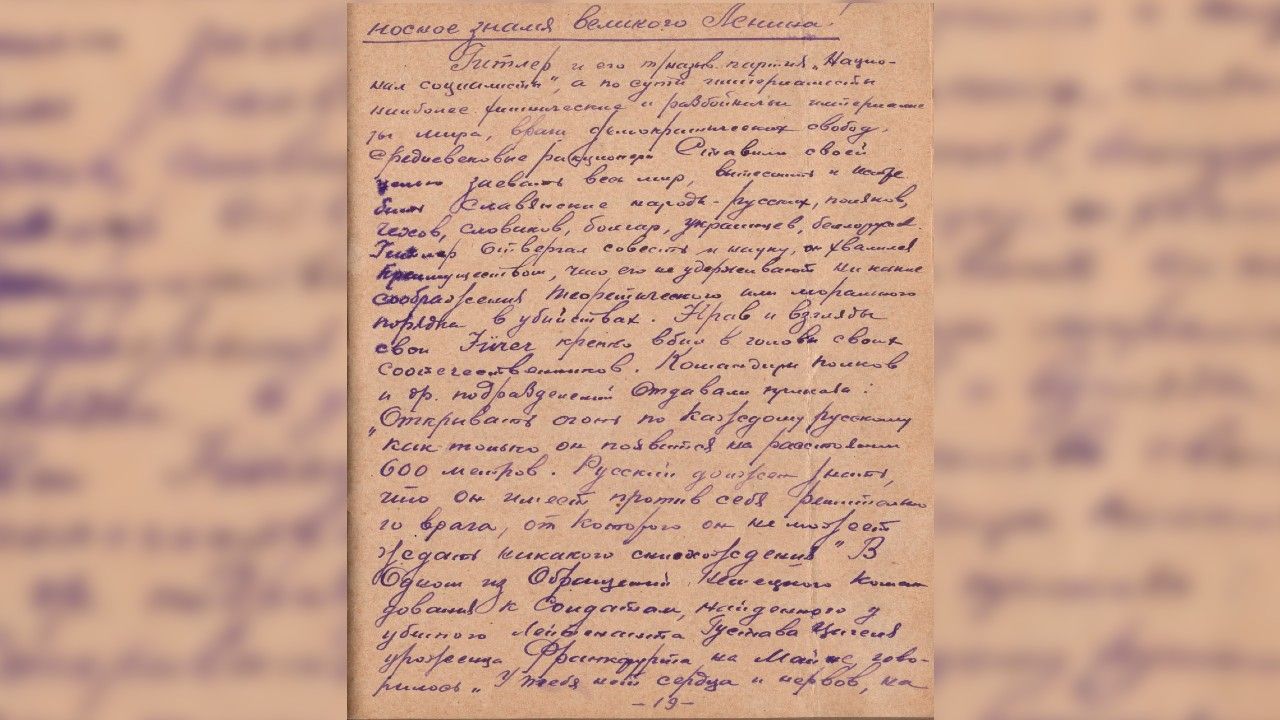 носное знамя великого Ленина!
Гитлер и его т. назыв. партия „Нацио-
нал социалисты", а по сути империалисты
наиболее хищнические и разбойничьи империалис
ты мира, враги демократических свобод,
средневековые реакционеры Ставили своей
целью завевать весь мир, вытеснить и истре
бить Славянские народы - русских, поляков,
чехов, словаков, болгар, украинцев, белоруссов.
Гитлер отвергал совесть и науку, он хвалился
преимуществом, что его не удерживают ни какие
соображения теоретического или морального
порядка в убийствах. Нрав и взгляды
свои Fürer крепко вбил в головы своих
соотечественников. Командиры полков
и др. подразделений отдавали приказы:
„Открывать огонь по каждому русскому
как только он появится на расстоянии
600 метров. Русский должен знать,
что он имеет против себя решительно
го врага, от которого он не может
ждать никакого снисхождения" В
Одном из Обращений Немецкого коман
дования к Солдатам, найденного у
убитого лейтенанта Густава Цигеля
уроженца Франкфурта на Майне, гово-
рилось „У тебя нет сердца и нервов, на
-19-